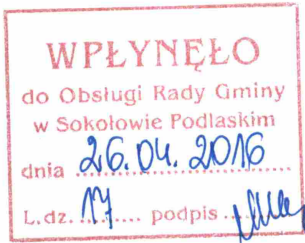 WPŁYNĘŁO
do Obsługi Rady Gminy
w Sokołowie Podlaskim
dnia 26.04.2016
L.dz. 17 podpis